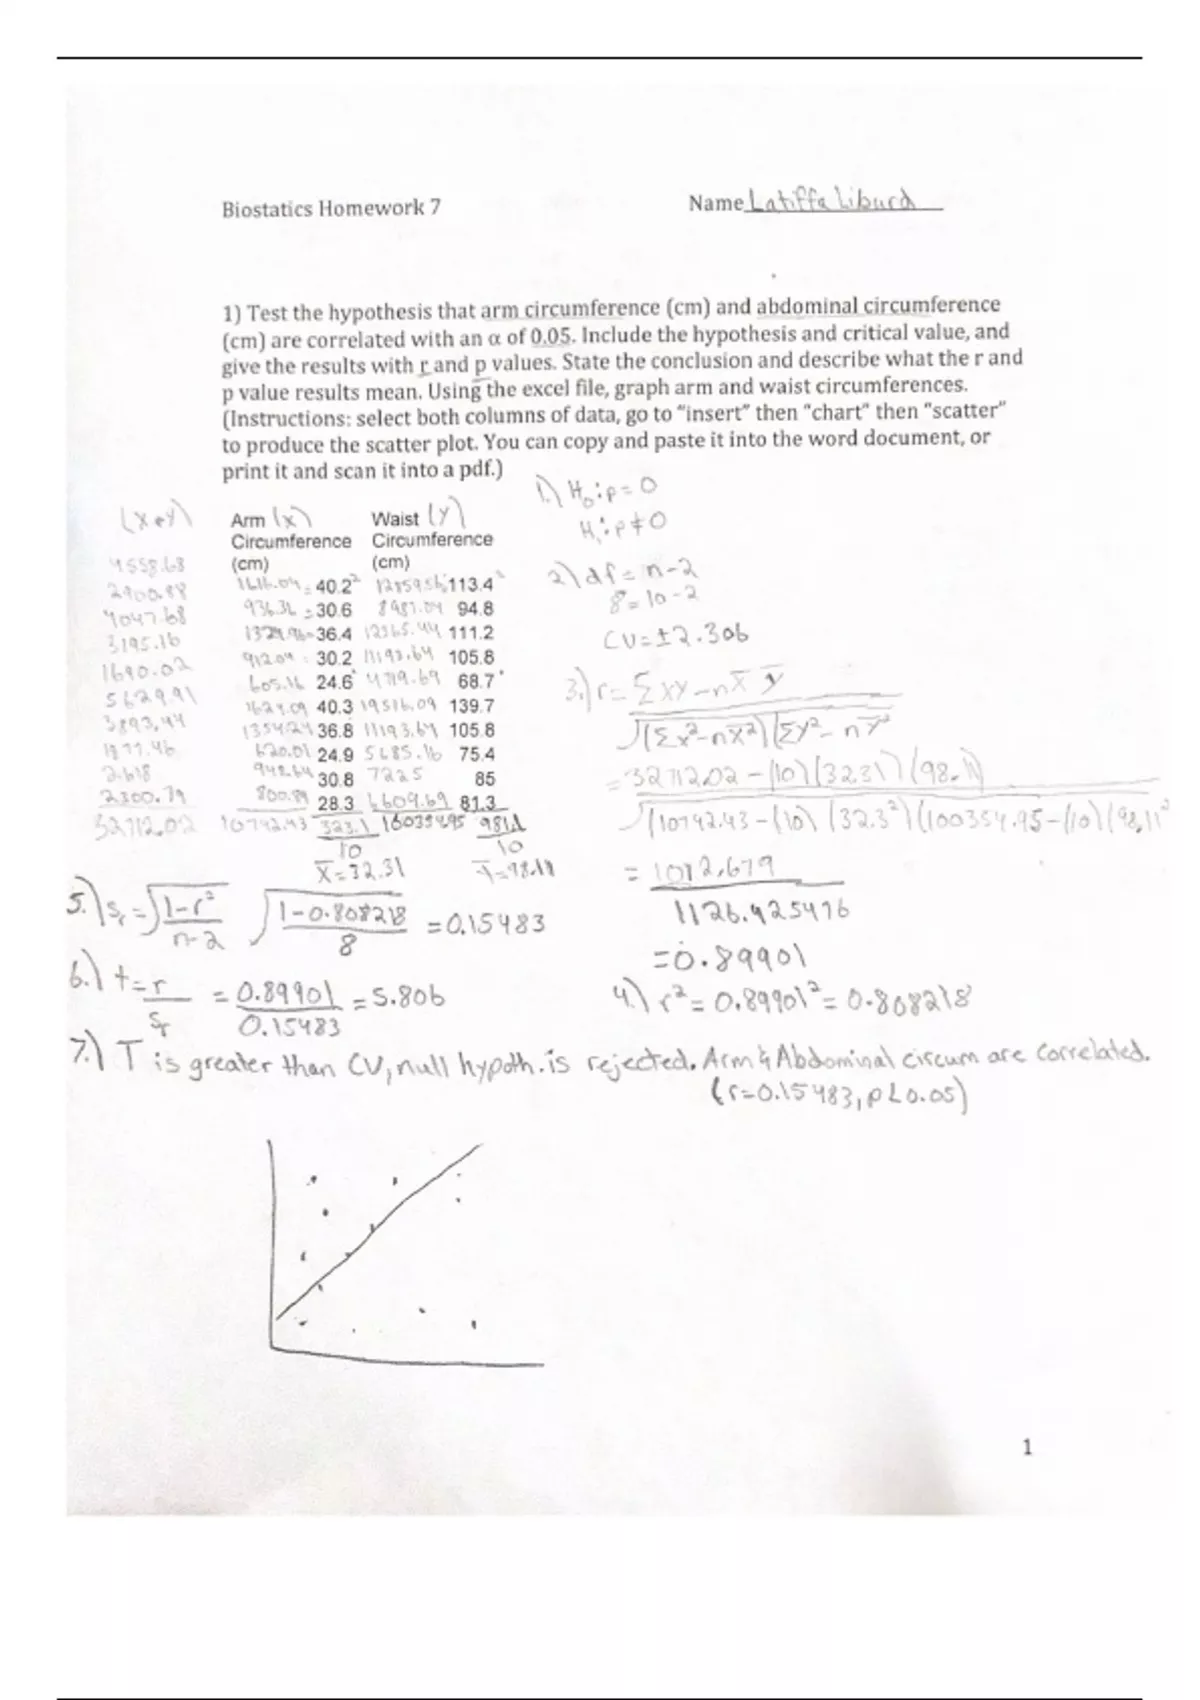 Biostatics Homework 7
Name Latiffa Liburd
1) Test the hypothesis that arm circumference (cm) and abdominal circumference
(cm) are correlated with an α of 0.05. Include the hypothesis and critical value, and
give the results with r and p values. State the conclusion and describe what the r and
p value results mean. Using the excel file, graph arm and waist circumferences.
(Instructions: select both columns of data, go to "insert" then "chart" then "scatter"
to produce the scatter plot. You can copy and paste it into the word document, or
print it and scan it into a pdf.)
1.) H₀: p = 0
H₁: p ≠ 0
(x*y) Arm (x) Waist (y)
Circumference Circumference
(cm) (cm)
4558.68 1616.04 = 40.2² 113.4
2900.88 936.36 = 30.6 8987.04 94.8
4047.68 36.4 12365.44 111.2
3195.16 912.04 30.2 11193.64 105.8
1690.02 605.16 24.6 4719.69 68.7
5629.91 1624.09 40.3 19516.09 139.7
3893.44 1354.24 36.8 11193.64 105.8
1877.46 620.01 24.9 5685.16 75.4
2618 948.64 30.8 7225 85
2300.79 800.89 28.3 6609.69 81.3
32712.02 10742.43 323.1 981.1
10 10
x̄ = 32.31 = 98.11
2.) df = n-2
8 = 10-2
CV = ±2.306
3.) r = Σxy - nx̄ ȳ
√(Σx² - nx̄²)(Σy² - nȳ²
= 32712.02 - (10)(32.31)(98.11)
√(10742.43 - (10)(32.3²)(100354.95 - (10)(98.11²
= 1012.679
1126.425476
= 0.89901
4.) r² = 0.89901² = 0.808218
5.) Sr = √1-r² √1-0.808218 = 0.15483
n-2 8
6.) t = r = 0.89901 = 5.806
Sr 0.15483
7.) T is greater than CV, null hypoth. is rejected. Arm & Abdominal circum are correlated.
(r=0.15483, p<0.05)
1